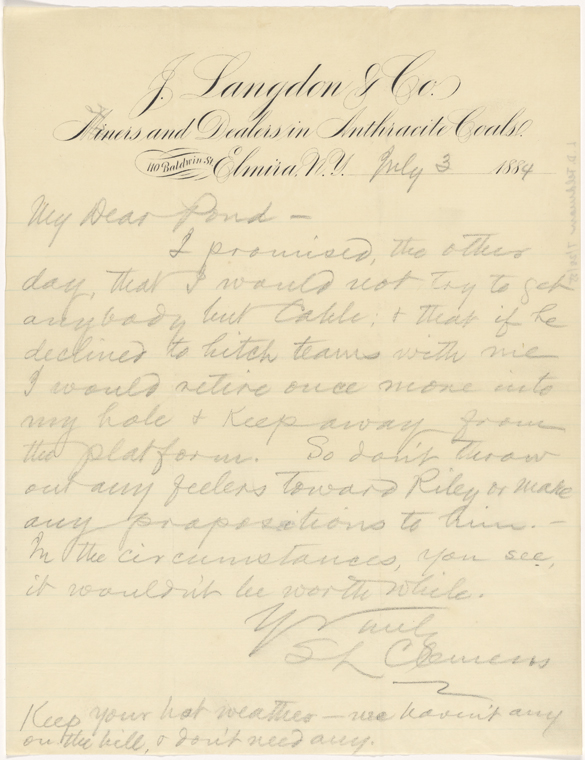 J. Langdon & Co.
Miners and Dealers in Anthracite Coals.
110 Baldwin St. Elmira, N.Y. July 3 1884
My Dear Pond —
I promised, the other
day, that I would not try to get
anybody but Cable; & that if he
declined to hitch teams with me
I would retire once more into
my hole & keep away from
the platform. So don't throw
out any feelers toward Riley or make
any propositions to him. —
In the circumstances, you see,
it wouldn't be worth while.
Yrs truly
S L Clemens
Keep your hot weather — we haven't any
on the hill, & don't need any.